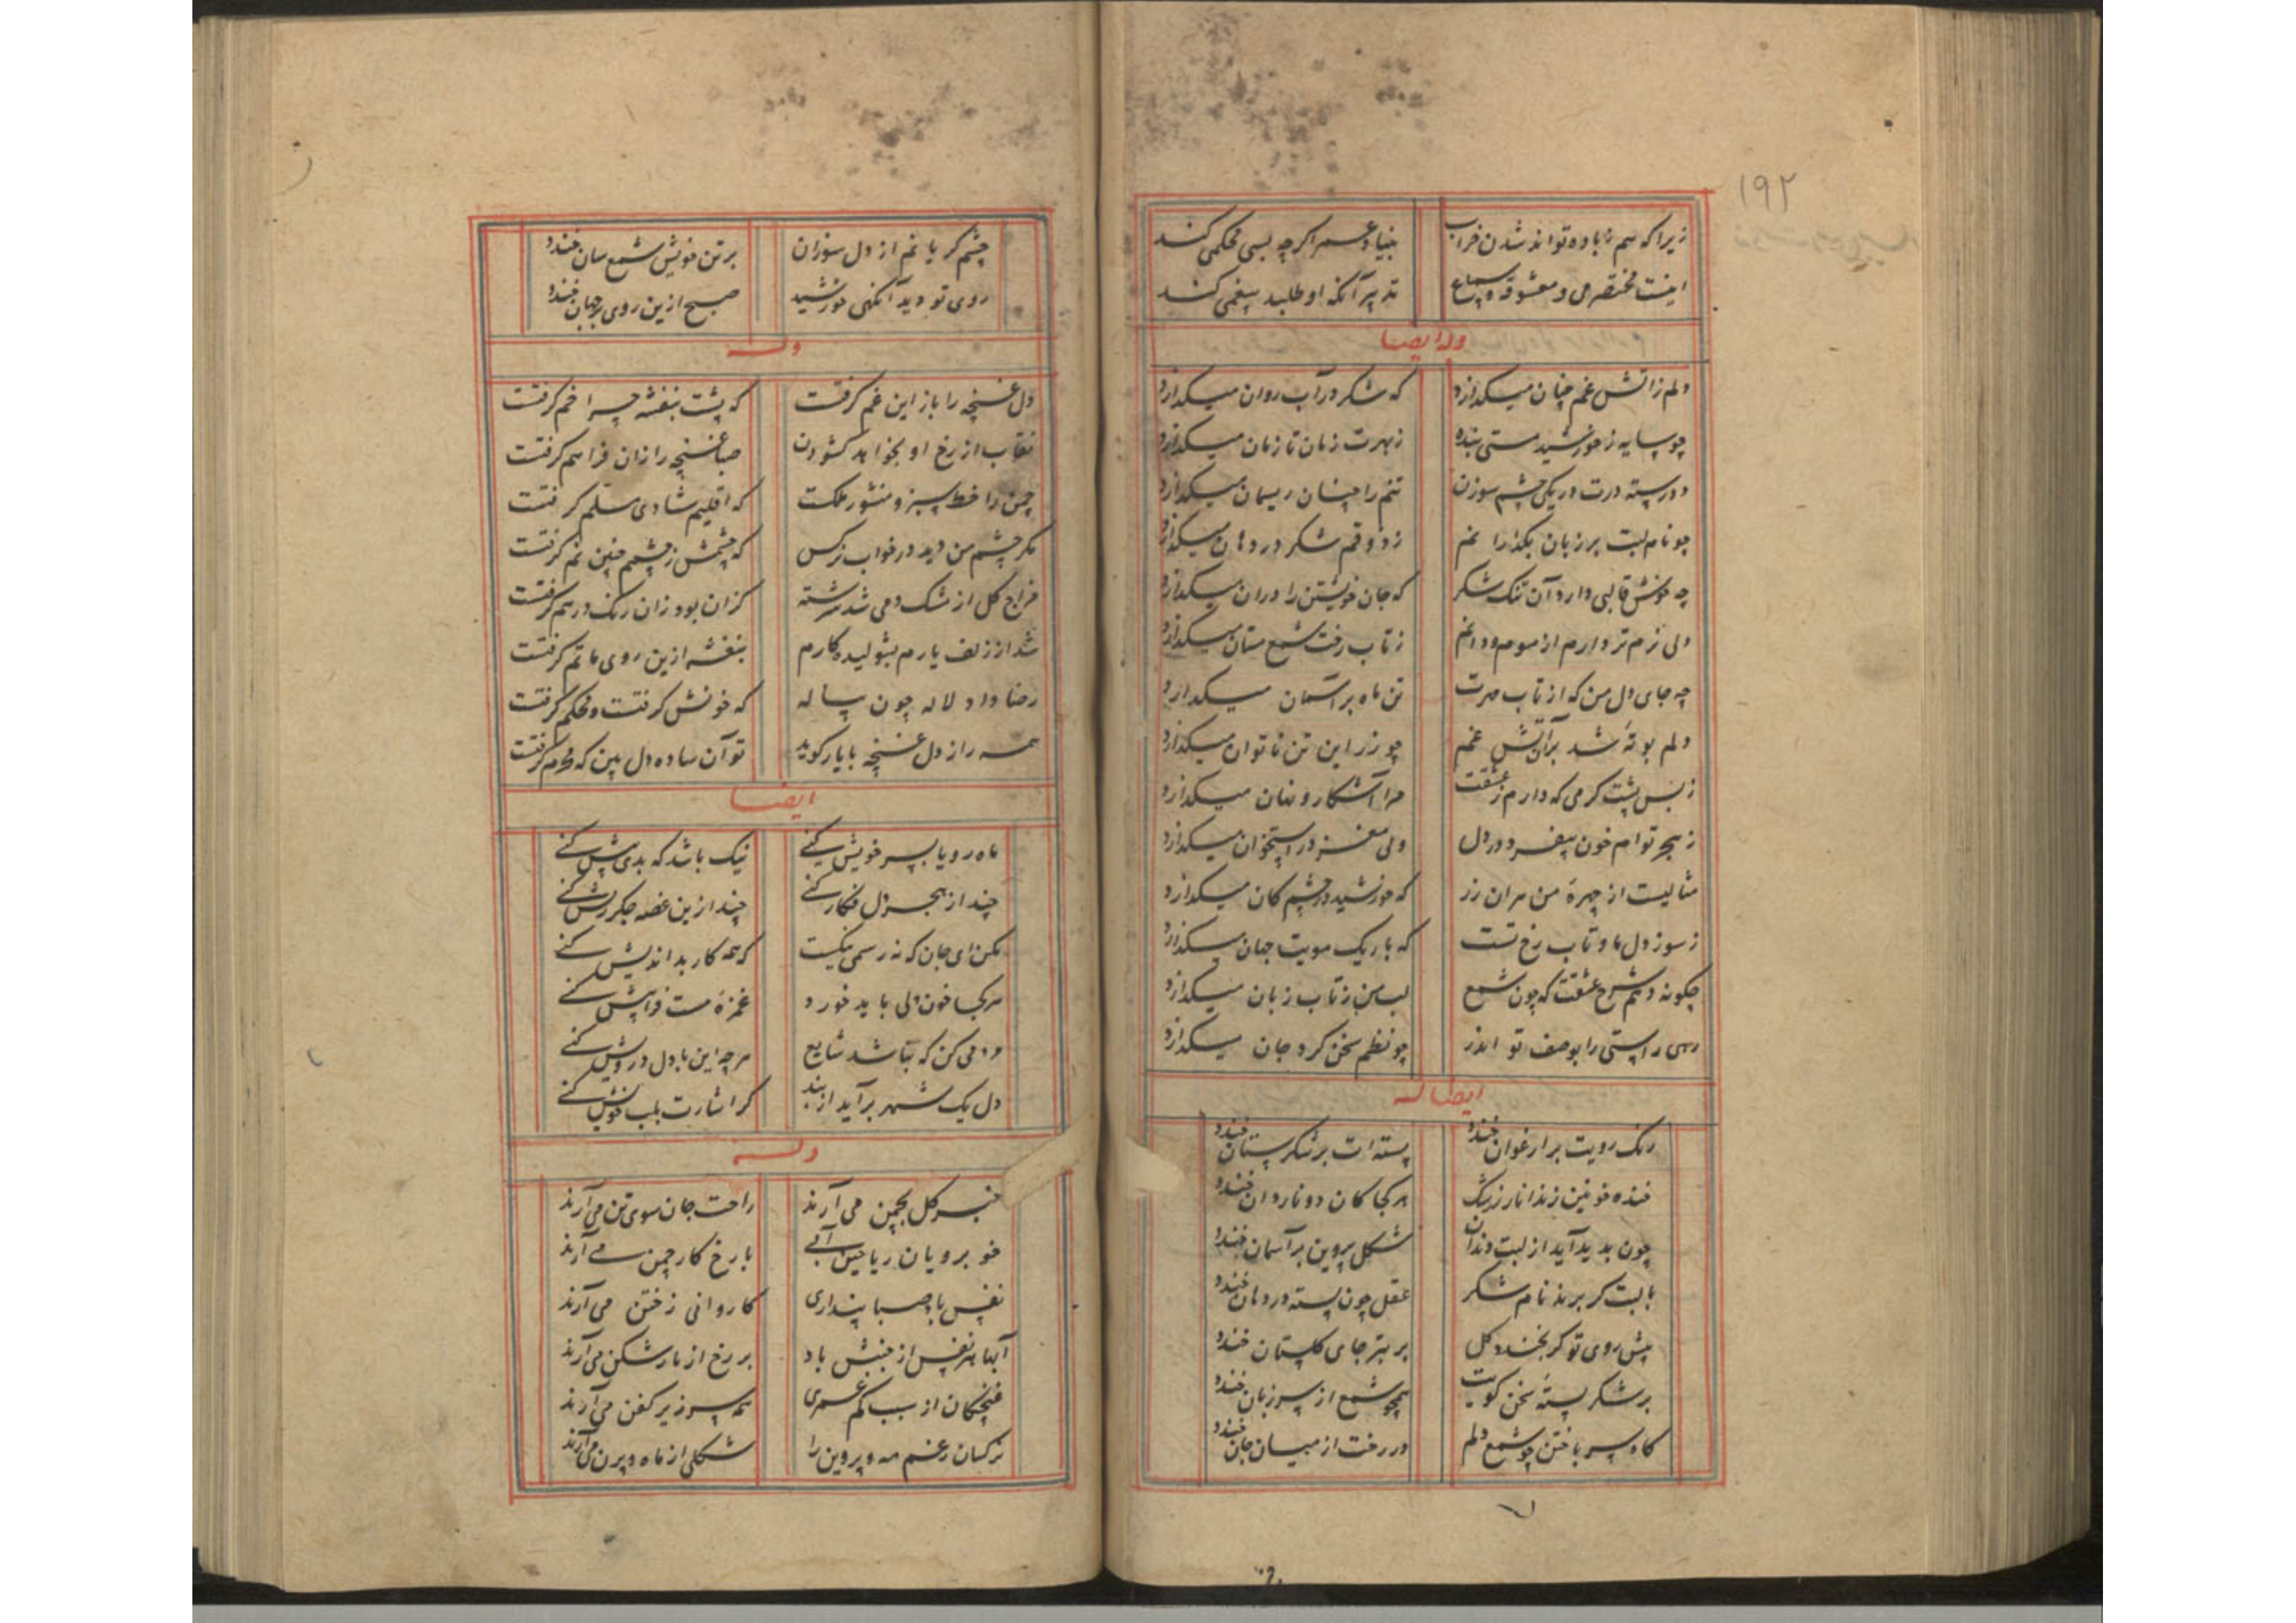 ۱۹۲
زیرا که هم زباده تواند شدن خراب بنیاد عمر اکرچه بسی محکمی کند
اینست مختصر می و معشوقه و سماع تدبیر آنکه او طلبد بیغمی کند
وله ایضا
دلم زاتش غم چنان میکدازد که شکر در آب روان میکدازد
چو سایه ز خورشید هستی بنده ز مهرت زمان تا زمان میکدازد
دو رسته درت در یکی چشم سوزن تنم را چنان ریسمان میکدازد
چو نام لبت بر زبان بکذرانم ز ذوقم شکر در دهان میکدازد
چه خوش قالبی دارد آن تنک شکر که جان خویشتن را در آن میکدازد
دلی نرم تر دارم از موم و دانم ز تاب رخت شمع سان میکدازد
چه جای دل من که از تاب مهرت تن ماه بر آسمان میکدازد
دلم بوته شد بر آتش غم چو زر این تن ناتوان میکدازد
ز بس پشت کرمی که دارم ز عشقت مرا آشکار و نهان میکدازد
ز هجر توام خون بیفسرد در دل ولی مغز در استخوان میکدازد
مثالیست از چهرهٔ من مران زر که خورشید در چشم کان میکدازد
ز سوز دل ما و تاب رخ تست که باریک مویت جهان میکدازد
چکونه دهم شرح عشقت که چون شمع لب من ز تاب زبان میکدازد
رهی راستی را بوصف تو اندر چو نظم سخن کرد جان میکدازد
ایضا له
رنک رویت بر ارغوان خندد پسته ات بر شکرستان خندد
خنده خونین زند انار ز رشک هر کجا کان دو ناردان خندد
چون بدید آید از لبت دندان شکل پروین بر آسمان خندد
با لبت کر برند نام شکر عقل چون پسته در دهان خندد
پیش روی تو کر بخندد کل بر بتر جای کلستان خندد
بر شکر پستهٔ سخن کویت همچو شمع از سر زبان خندد
کاه سر باختن چو شمع دلم در رخت از میان جان خندد
چشم کریانم از دل سوزان بر تن خویش شمع سان خندد
روی تو دید آنکهی خورشید صبح ازین روی بر جهان خندد
وله
دل غنچه را باز این غم کرفتست که پشت بنفشه چرا خم کرفتست
نقاب از رخ او بخواهد کشودن صبا غنچه را زان فراهم کرفتست
چمن را خط سبز و منشور ملکت که اقلیم شادی مسلم کرفتست
مکر چشم من دید در خواب نرکس که چشمش ز چشمم چنین نم کرفتست
مزاج کل از مشک و می شد سرشته کزان بود زان رنک درهم کرفتست
شد از زلف یارم بشولیده کارم بنفشه ازین روی ماتم کرفتست
رضا داد لاله چون پیاله که خونش کرفتست و محکم کرفتست
همه راز دل غنچه با یار کوید تو آن ساده دل بین که محرم کرفتست
ایضا
ماه رویا بسر خویش کنے نیک باشد که بدی پیش کنے
چند از هجر دل فکار کنے چند ازین غصه جکر ریش کنے
مکن ای جان که نه رسمی نیکست که همه کار بد اندیش کنے
هر کجا خون دلی باید خورد غمزهٔ مست فراپیش کنے
مردمی کن که نباشد شایع هر چه این با دل درویش کنے
دل یک شهر برآید از بند کر اشارت بلب خویش کنے
وله
خبر کل بچمن می آرند راحت جان سوی تن می آرند
خوبرویان ریاحین آبے با رخ کار چمن می آرند
نفس باد صبا پنداری کاروانی ز ختن می آرند
آبها هر نفس از جنبش باد بر رخ از مار شکن می آرند
غنچکان از سبب کم عمری هم سر زیر کفن می آرند
نرکسان رغم مه و پروین را شکلی از ماه و پرن می آرند